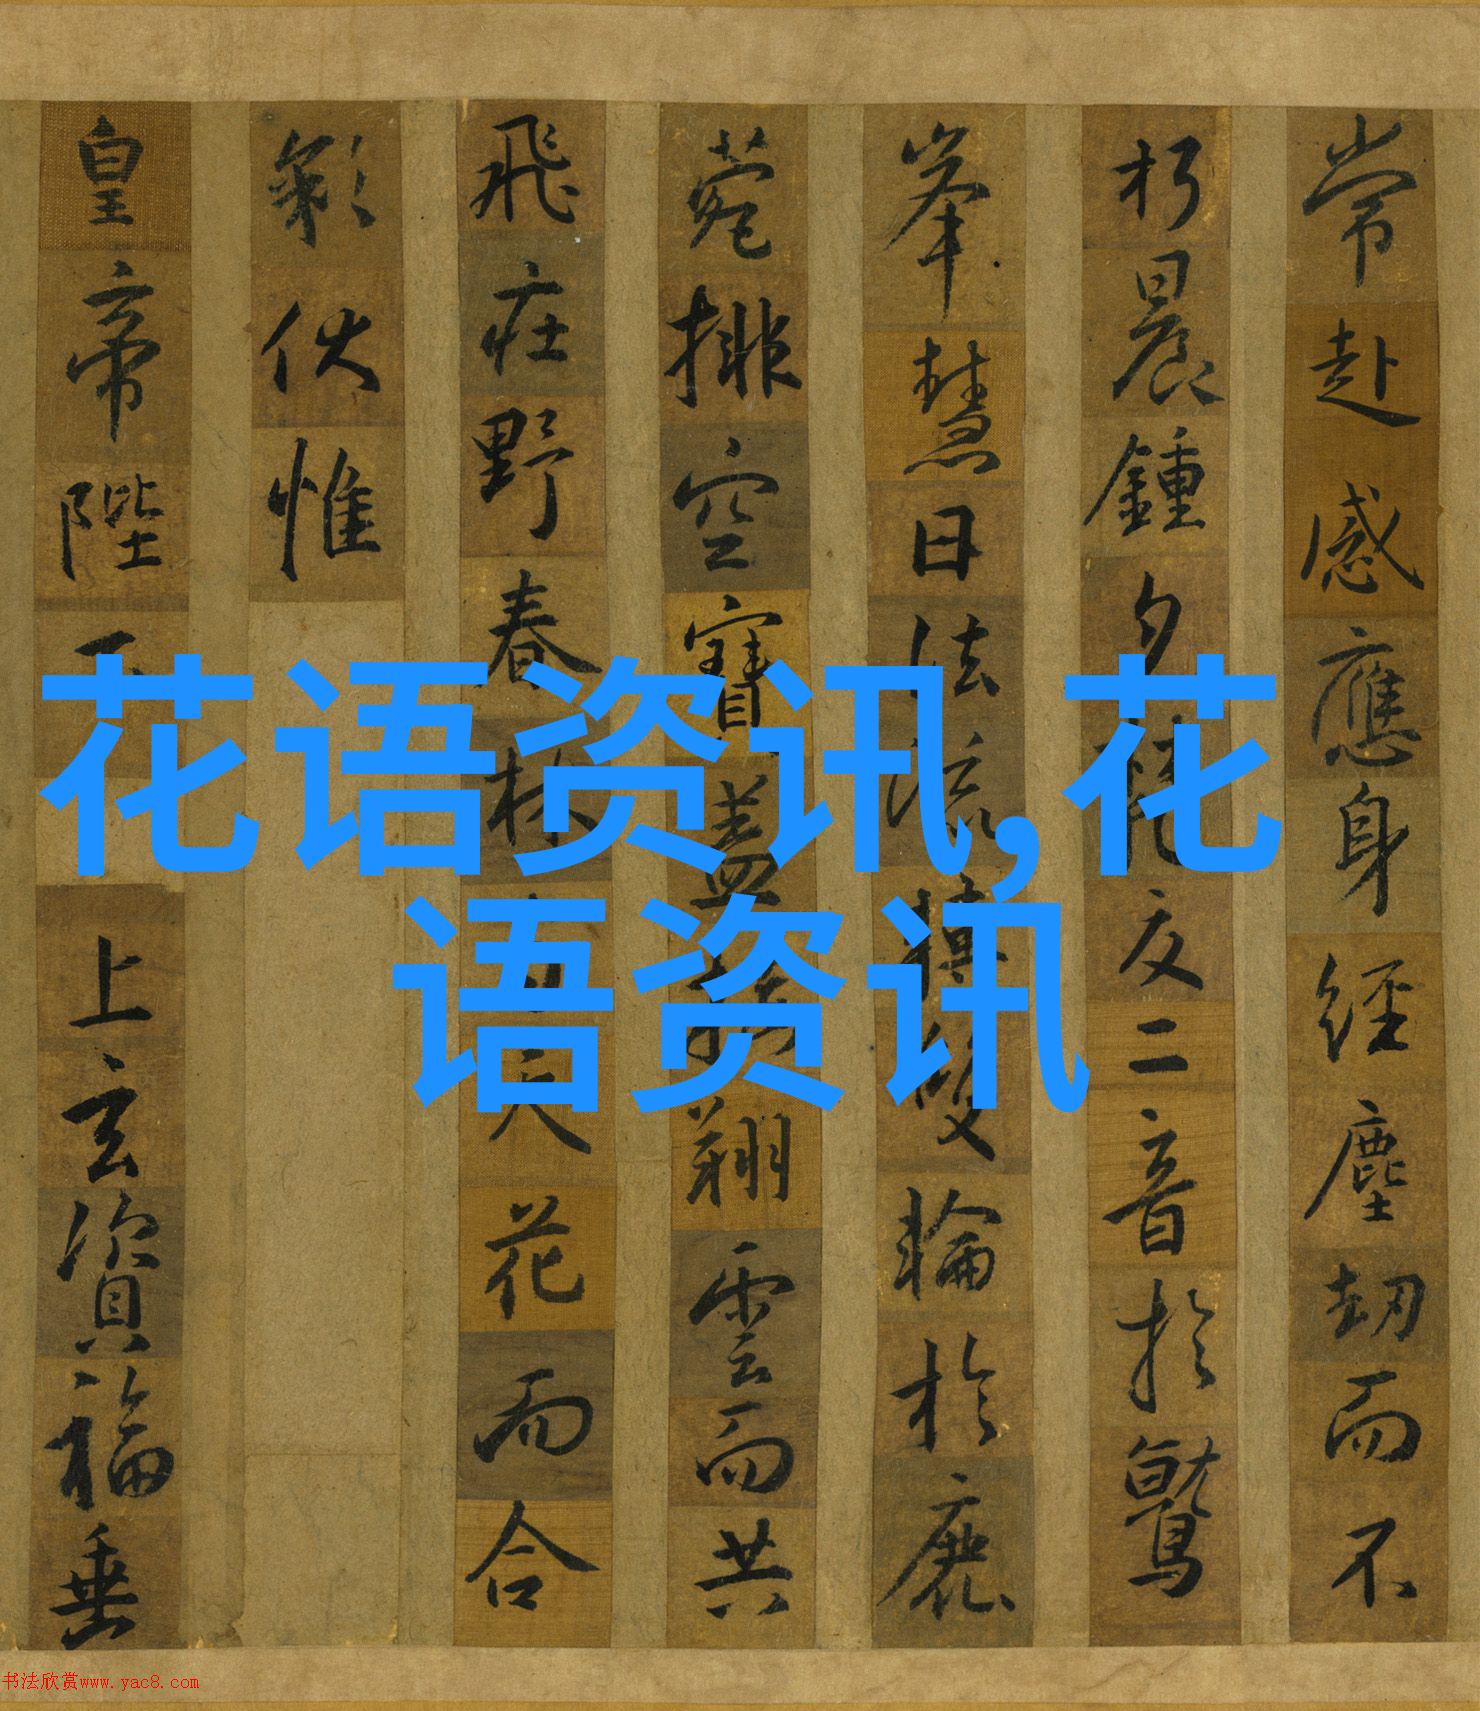 常赴感應身經塵劫而不
朽晨鍾夕梵交二音於鷲
峯慧日法流轉雙輪於鹿
菀排空寶蓋接翔雲而共
飛莊野春林與天花而合
彩伏惟
皇帝陛下
上玄資福垂
花语资讯,花
语资讯
书法欣赏www.yac8.com